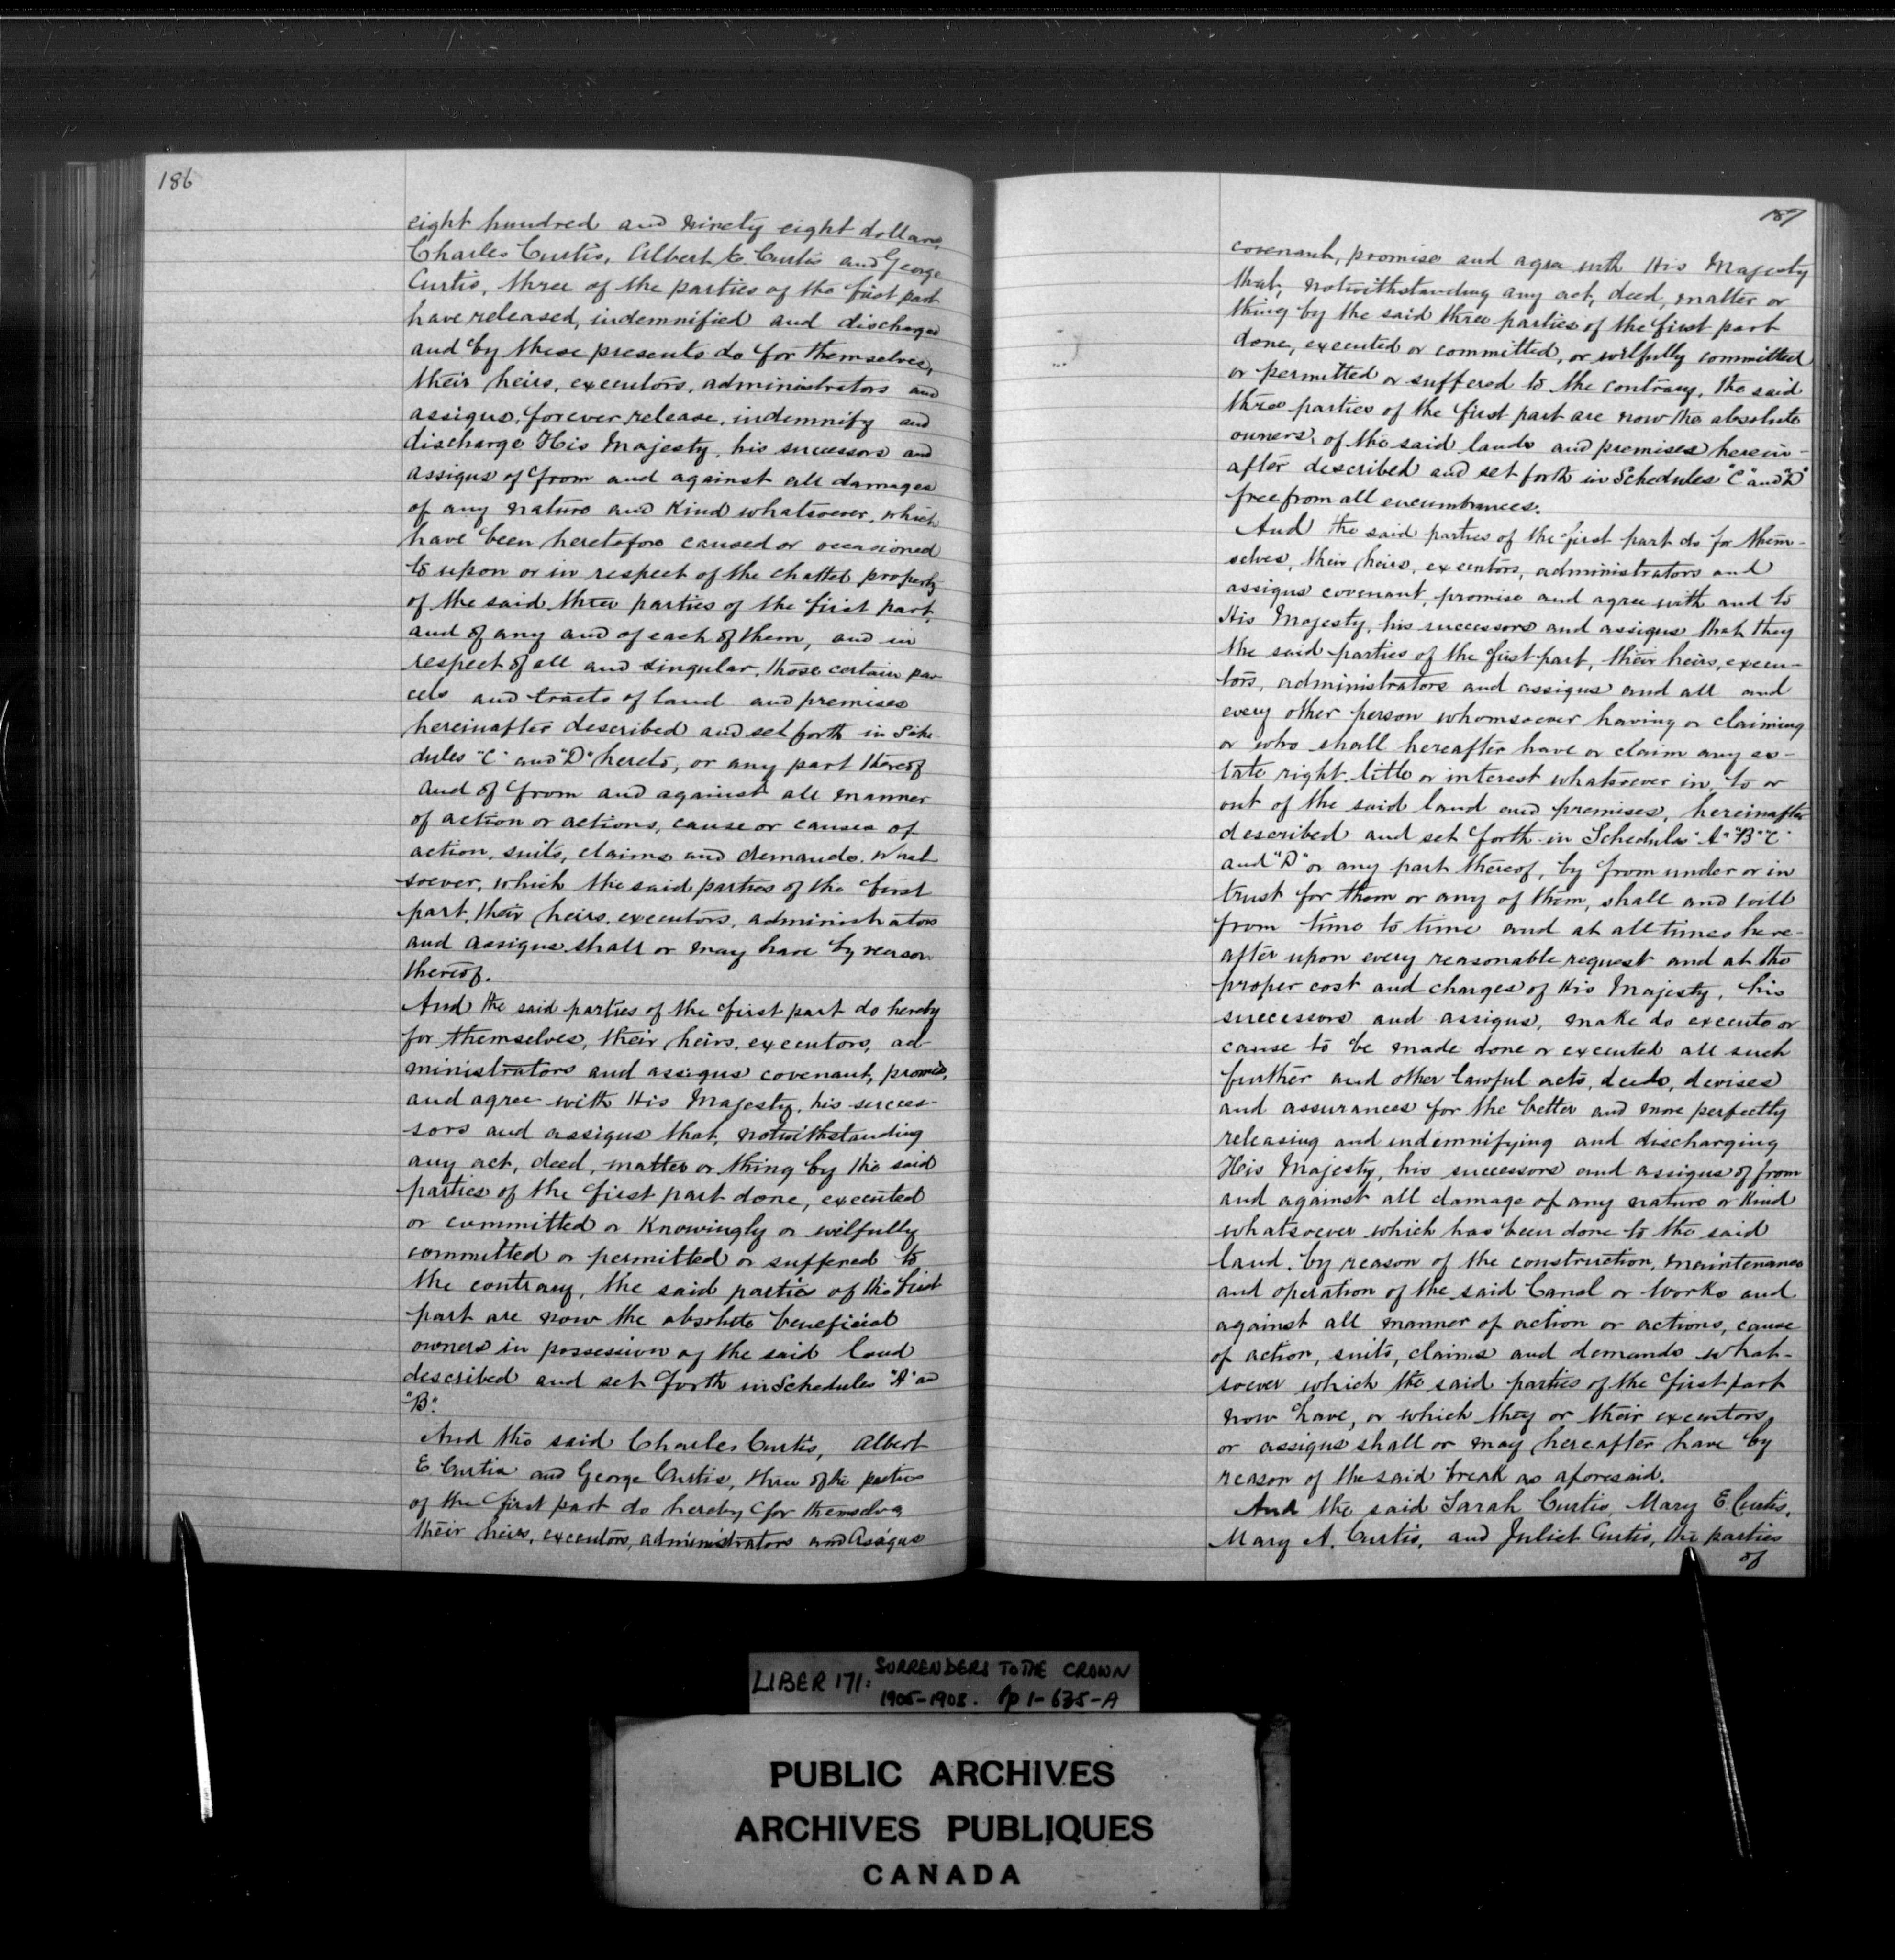 186
eight hundred and ninety eight dollars,
Charles Curtis, Albert E. Curtis and George
Curtis, three of the parties of the first part
have released, indemnified and discharged
and by these presents do for themselves,
their heirs, executors, administrators and
assigns, forever release, indemnify and
discharge His Majesty, his successors and
assigns of from and against all damages
of any nature and kind whatsoever, which
have been heretofore caused or occasioned
to upon or in respect of the chattel property
of the said three parties of the first part,
and of any and of each of them, and in
respect of all and singular, those certain par
cels and tracts of land and premises
hereinafter described and set forth in Sche
dules "C" and "D" hereto, or any part thereof
and of from and against all manner
of action or actions, cause or causes of
action, suits, claims and demands, what
soever, which the said parties of the first
part, their heirs, executors, administrators
and assigns shall or may have by reason
thereof.
And the said parties of the first part do hereby
for themselves, their heirs, executors, ad
ministrators and assigns covenant, promise,
and agree with His Majesty, his succes-
sors and assigns that, notwithstanding
any act, deed, matter or thing by the said
parties of the first part done, executed
or committed or knowingly or wilfully
committed or permitted or suffered to
the contrary, the said parties of the first
part are now the absolute beneficial
owners in possession of the said land
described and set forth in Schedules "A" and
"B".
And the said Charles Curtis, Albert
E Curtis and George Curtis, three of the parties
of the first part do hereby for themselves
their heirs, executors, administrators and assigns
187
covenant, promise and agree with His Majesty
that, notwithstanding any act, deed, matter or
thing by the said three parties of the first part
done, executed or committed, or wilfully committed
or permitted or suffered to the contrary, the said
three parties of the first part are now the absolute
owners, of the said lands and premises herein-
after described and set forth in Schedules "C" and "D"
free from all encumbrances.
And the said parties of the first part do for them-
selves, their heirs, executors, administrators and
assigns covenant, promise and agree with and to
His Majesty, his successors and assigns that they
the said parties of the first part, their heirs, execu-
tors, administrators and assigns and all and
every other person whomsoever having or claiming
or who shall hereafter have or claim any es-
tate right title or interest whatsoever in, to or
out of the said land and premises, hereinafter
described and set forth in Schedules "A" "B" "C"
and "D" or any part thereof, by from under or in
trust for them or any of them, shall and will
from time to time and at all times here-
after upon every reasonable request and at the
proper cost and charges of His Majesty, his
successors and assigns, make do execute or
cause to be made done or executed all such
further and other lawful acts, deeds, devises
and assurances for the better and more perfectly
releasing and indemnifying and discharging
His Majesty, his successors and assigns of from
and against all damage of any nature or kind
whatsoever which has been done to the said
land, by reason of the construction, maintenance
and operation of the said Canal or works and
against all manner of action or actions, cause
of action, suits, claims and demands what-
soever which the said parties of the first part
now have, or which they or their executors,
or assigns shall or may hereafter have by
reason of the said break as aforesaid.
And the said Sarah Curtis, Mary E. Curtis,
Mary A. Curtis, and Juliet Curtis, the parties
of
LIBER 171: SURRENDERS TO THE CROWN
1905-1908. Pp 1-635-A
PUBLIC ARCHIVES
ARCHIVES PUBLIQUES
CANADA